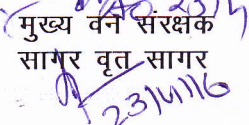 मुख्य वन संरक्षक
सागर वृत सागर
23/4/16